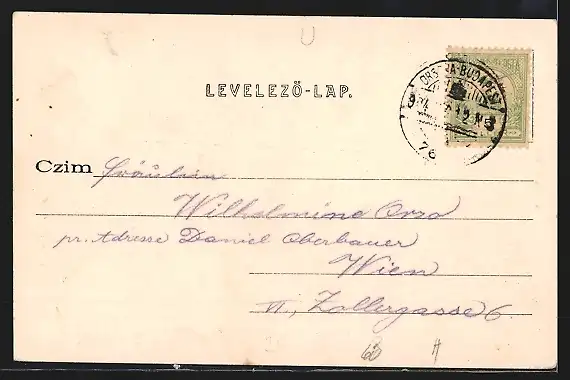 LEVELEZŐ-LAP.
ORSOVA-BUDAPEST
76
Czim Fräulein
Wilhelmine Orso
pr. Adresse Daniel Oberbauer
Wien
VI., Zollergasse 6.